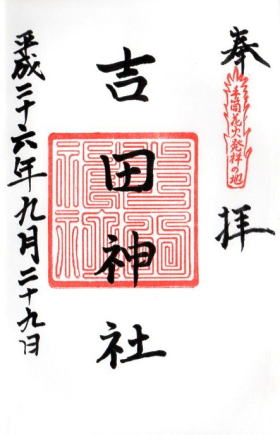 奉拝
手筒花火発祥の地
吉田神社
平成二十六年九月二十九日